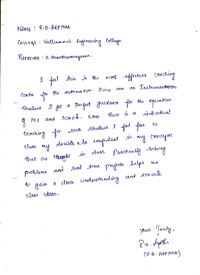 Name : R.D. ARPITHA
College : Velliammal Engineering College
Reference : R. Ramanarayanan.
I feel this is the most efficient coaching
Centre for the automation. Since am an Instrumentation
Student I got a perfect guidance for the operation
of PLC and SCADA. And this is a individual
coaching for each student I feel free to
clear my doubts & confident in my concepts
that are taught in class. Practically solving
problems and real time projects helps me
to gain a clear understanding and
clear ideas.
Yours Truly,
(R.D. ARPITHA)